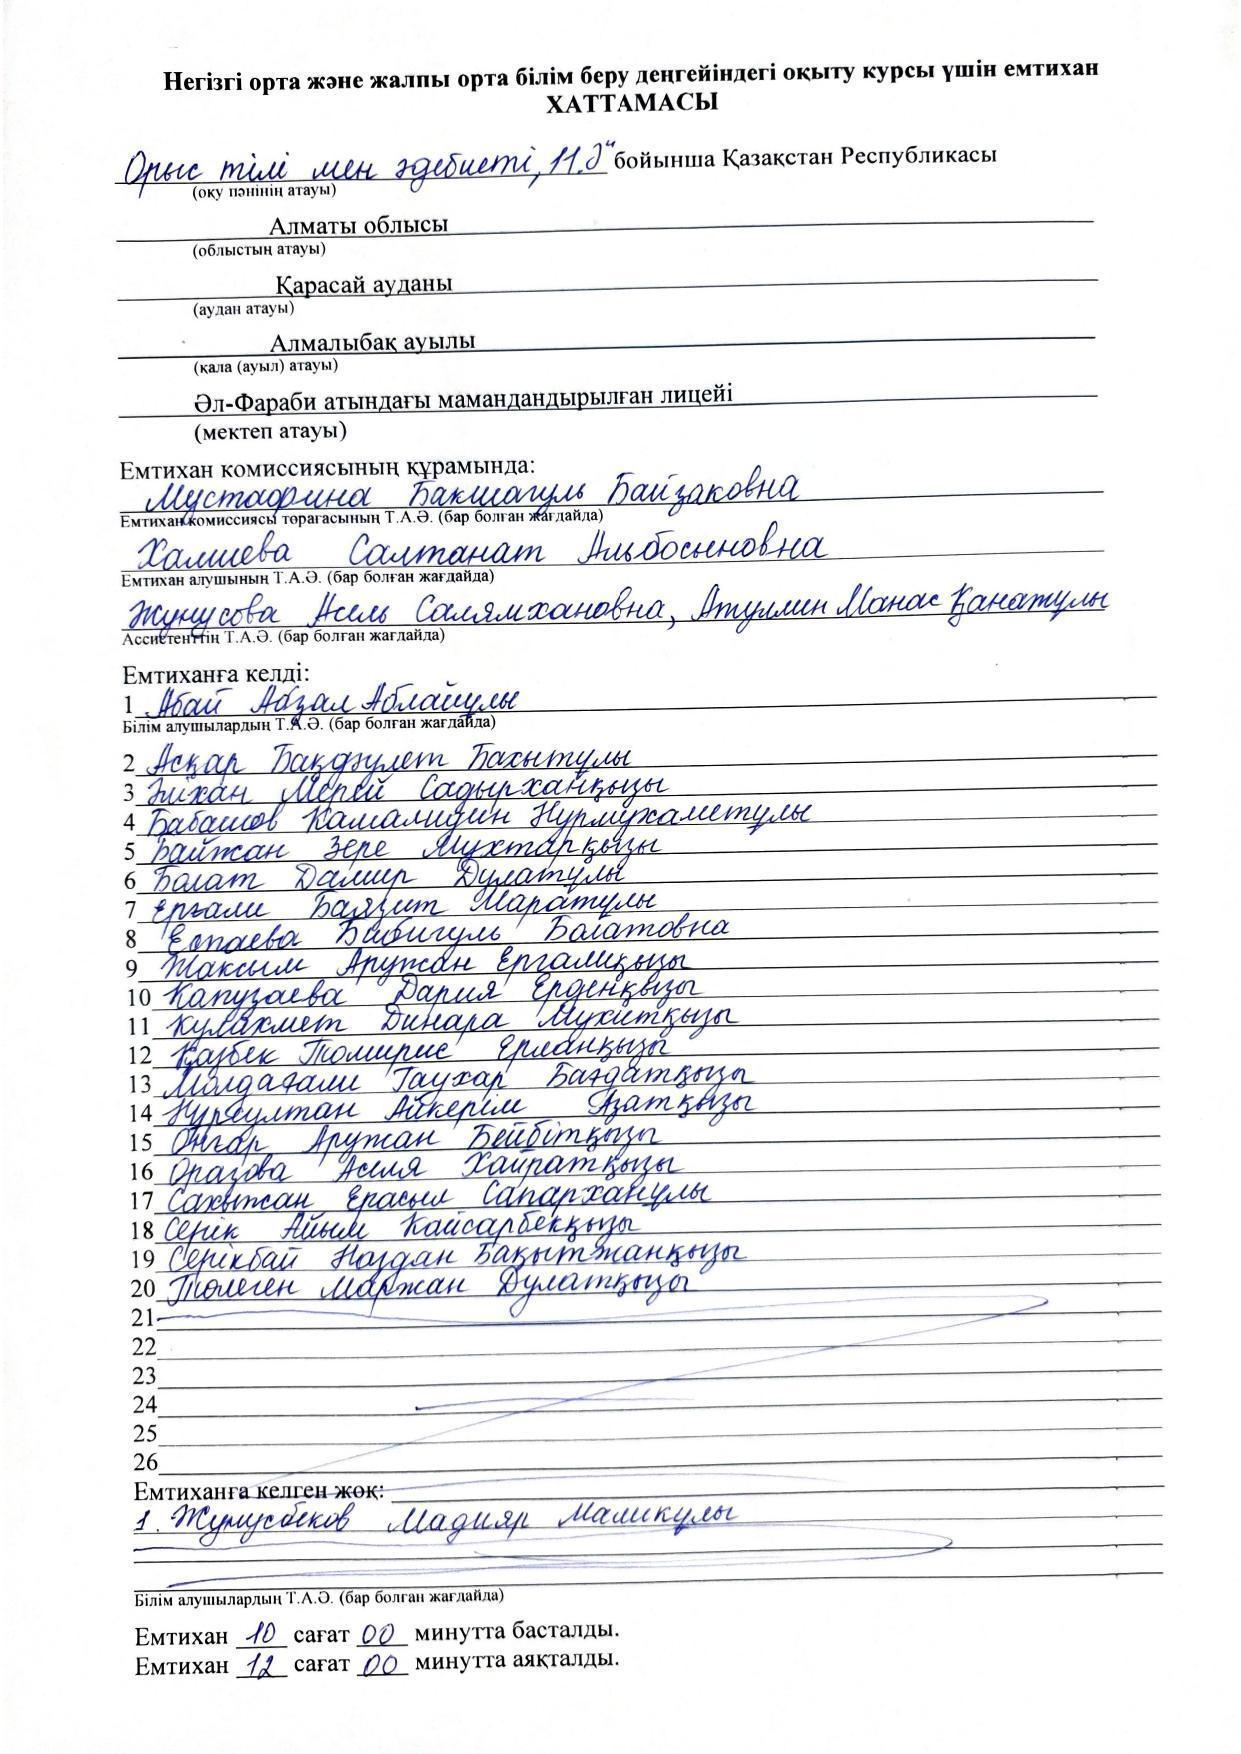 Негізгі орта және жалпы орта білім беру деңгейіндегі оқыту курсы үшін емтихан
ХАТТАМАСЫ
Орыс тілі мен әдебиеті, 11.Ә" бойынша Қазақстан Республикасы
(оқу пәнінің атауы)
Алматы облысы
(облыстың атауы)
Қарасай ауданы
(аудан атауы)
Алмалыбақ ауылы
(қала (ауыл) атауы)
Әл-Фараби атындағы мамандандырылған лицейі
(мектеп атауы)
Емтихан комиссиясының құрамында:
Мустафина Бакшагуль Байзаковна
Емтихан комиссиясы төрағасының Т.А.Ә. (бар болған жағдайда)
Халиева Салтанат Альбосыновна
Емтихан алушының Т.А.Ә. (бар болған жағдайда)
Жунусова Асель Салямхановна, Атулмин Манас Қанатұлы
Ассистенттің Т.А.Ә. (бар болған жағдайда)
Емтиханға келді:
1 Абай Абзал Аблайұлы
Білім алушылардың Т.А.Ә. (бар болған жағдайда)
2 Асқар Бақдәулет Бахытұлы
3 Әшхан Мерей Садырханқызы
4 Бабашов Камалидин Нурмухаметұлы
5 Байжан Зере Мұхтарқызы
6 Болат Дамир Дулатұлы
7 Ерғали Баязит Маратұлы
8 Еспаева Бибигуль Болатовна
9 Жаксым Аружан Ергалиқызы
10 Капузаева Дария Ерденқызы
11 Кулахмет Динара Мухитқызы
12 Қазбек Томирис Ерланқызы
13 Молдағали Гаухар Бағдатқызы
14 Нұрсұлтан Айкерім Азатқызы
15 Оңғар Аружан Бейбітқызы
16 Оразова Аселя Хайратқызы
17 Сахыжан Ерасыл Сапарханұлы
18 Серік Айым Кайсарбекқызы
19 Серікбай Наздан Бақытжанқызы
20 Төлеген Маржан Дулатқызы
21
22
23
24
25
26
Емтиханға келген жоқ:
1. Жунусбеков Мадияр Маликұлы
Білім алушылардың Т.А.Ә. (бар болған жағдайда)
Емтихан 10 сағат 00 минутта басталды.
Емтихан 12 сағат 00 минутта аяқталды.